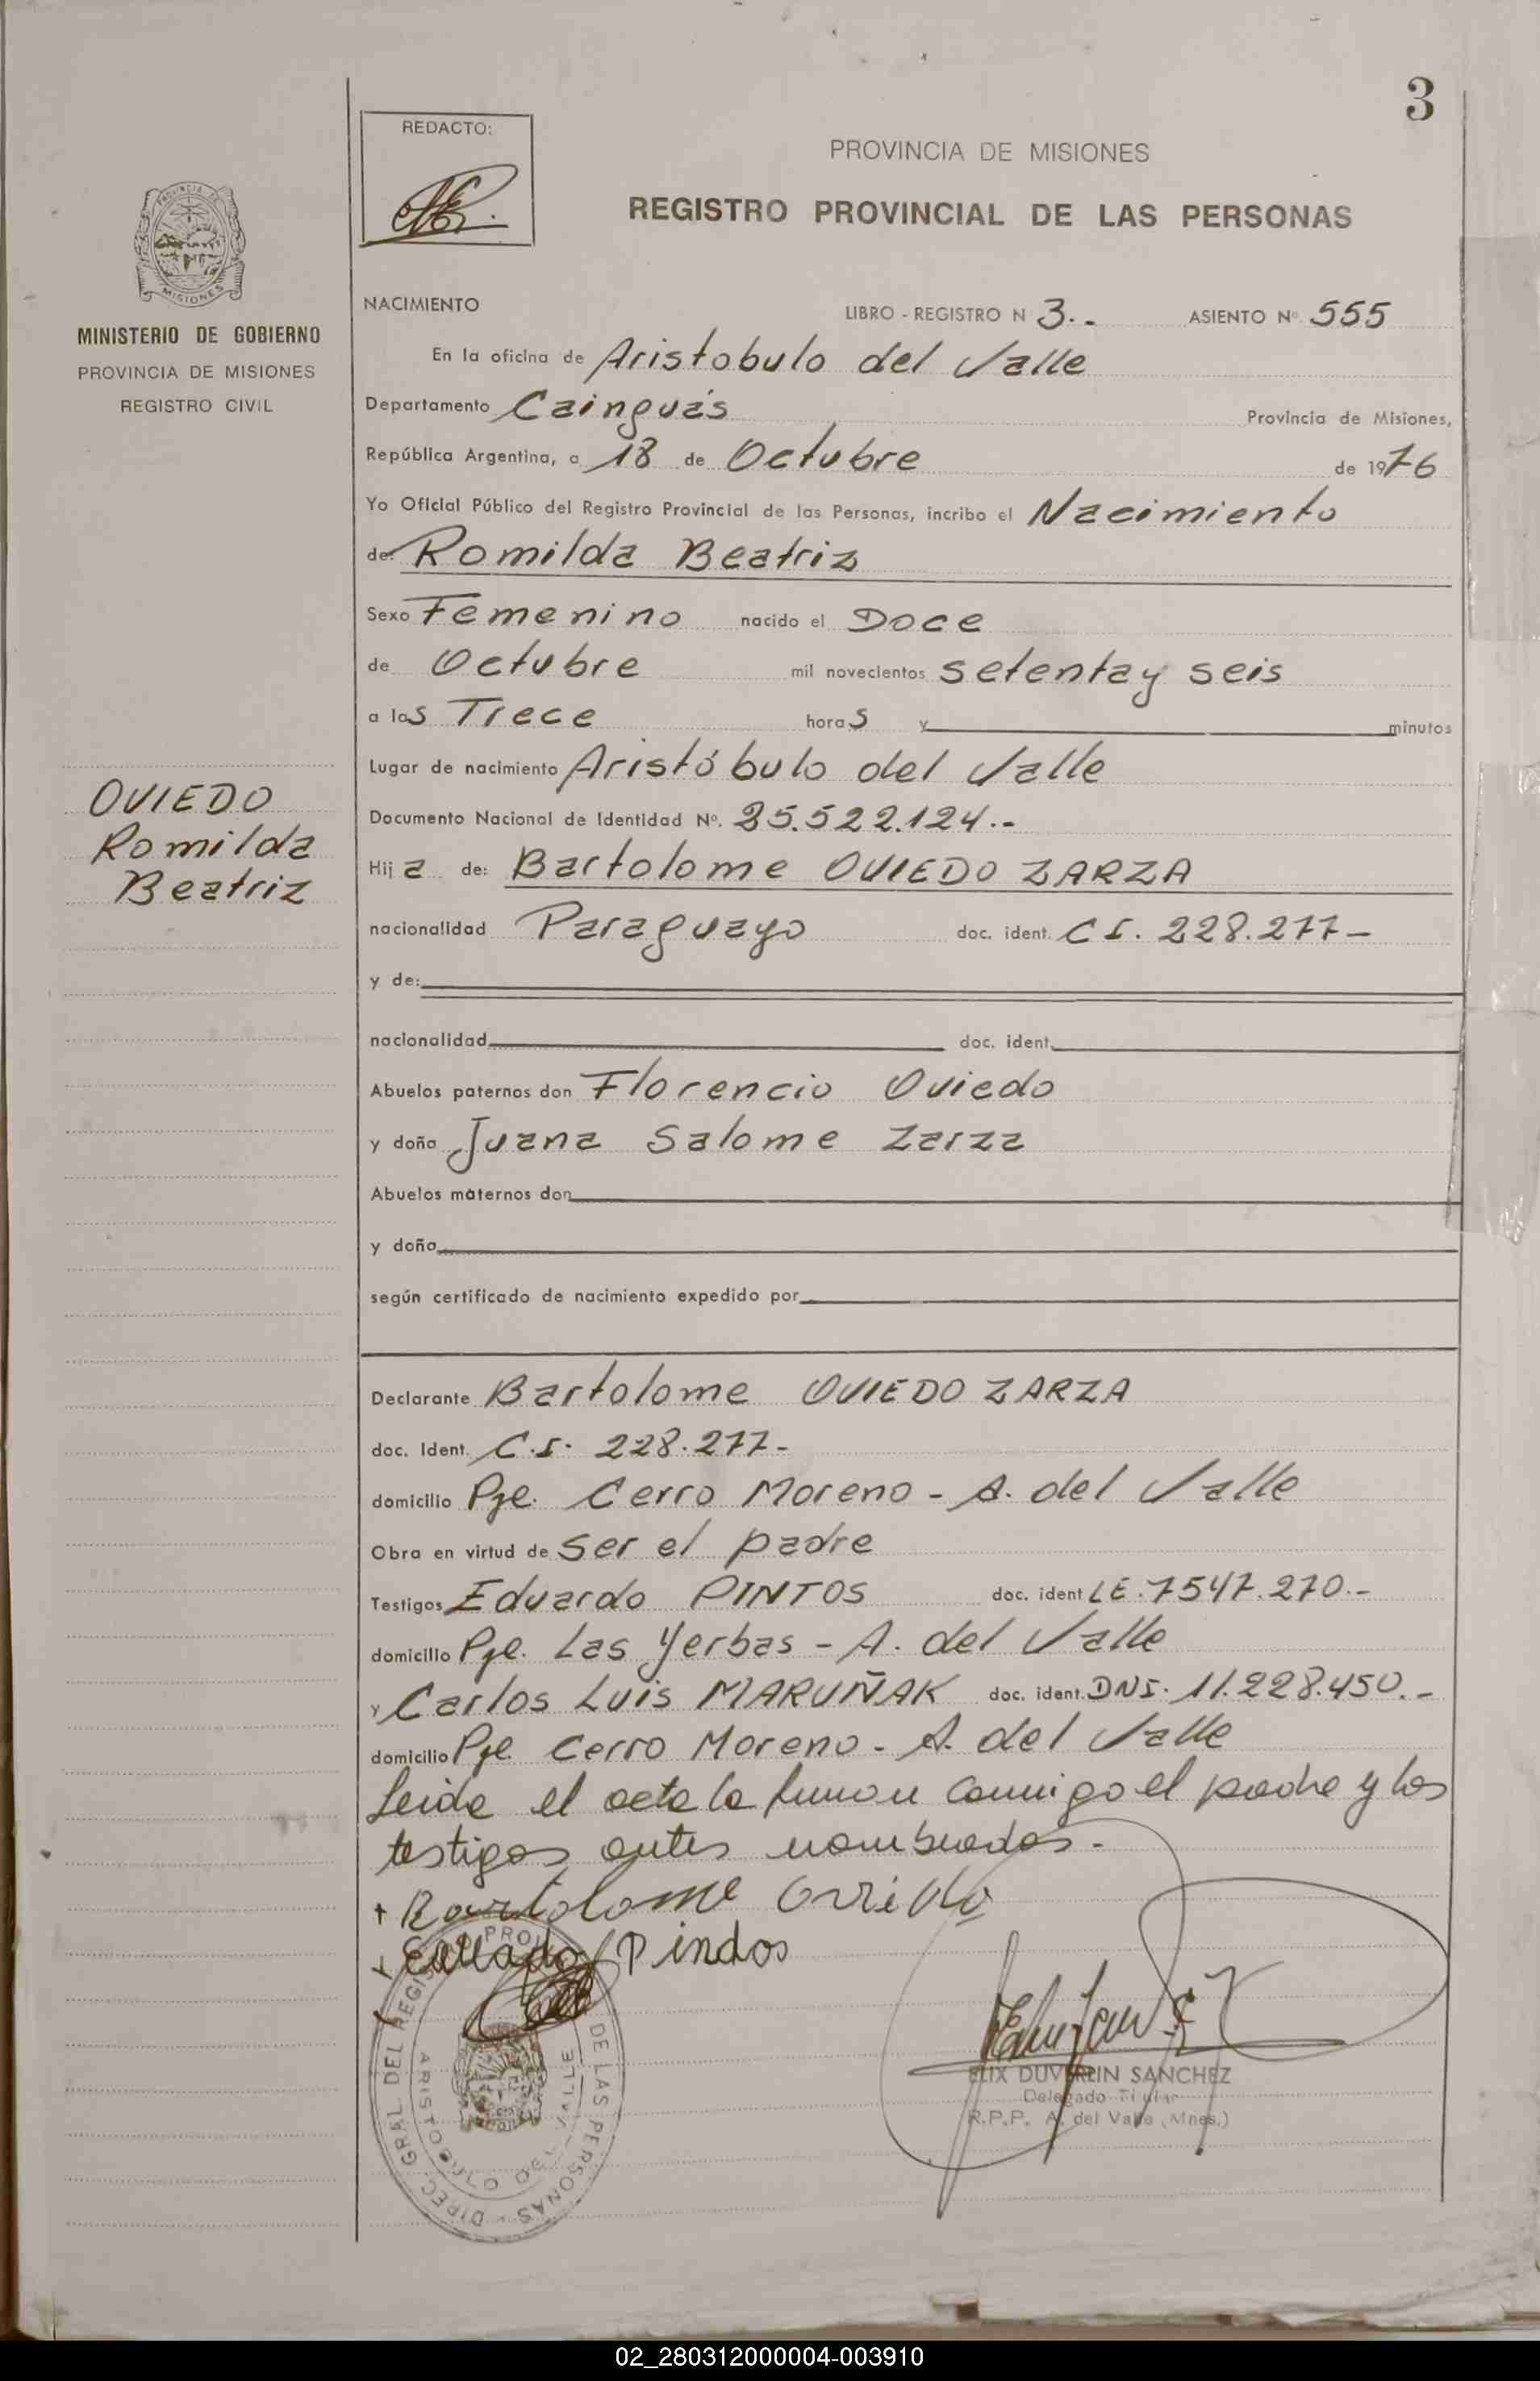 3
REDACTO:
PROVINCIA DE MISIONES
REGISTRO PROVINCIAL DE LAS PERSONAS
PROVINCIA DE
MISIONES
MINISTERIO DE GOBIERNO
PROVINCIA DE MISIONES
REGISTRO CIVIL
NACIMIENTO LIBRO - REGISTRO N 3.- ASIENTO Nº 555
En la oficina de Aristobulo del Valle
Departamento Cainguás Provincia de Misiones,
República Argentina, a 18 de Octubre de 1976
Yo Oficial Público del Registro Provincial de las Personas, incribo el Nacimiento
de: Romilda Beatriz
Sexo Femenino nacido el Doce
de Octubre mil novecientos setenta y seis
a las Trece horas y minutos
Lugar de nacimiento Aristóbulo del Valle
OVIEDO
Romilda
Beatriz
Documento Nacional de Identidad Nº. 25.522.124.-
Hija de: Bartolome OVIEDO ZARZA
nacionalidad Paraguayo doc. ident. C I. 228.277-
y de:
nacionalidad doc. ident.
Abuelos paternos don Florencio Oviedo
y doña Juana Salome Zarza
Abuelos maternos don
y doña
según certificado de nacimiento expedido por
Declarante Bartolome OVIEDO ZARZA
doc. Ident. C.I. 228.277-
domicilio Pje. Cerro Moreno - A. del Valle
Obra en virtud de ser el padre
Testigos Eduardo PINTOS doc. ident LE. 7547.270.-
domicilio Pje. Las Yerbas - A. del Valle
y Carlos Luis MARUÑAK doc. ident. DNI. 11.228.450.-
domicilio Pje Cerro Moreno - A. del Valle
Leida el acta la firman conmigo el padre y los
testigos antes nombrados.-
+ Bartolome Oviedo
Pindos
DIREC. GRAL. DEL REGISTRO PROV. DE LAS PERSONAS
ARISTOBULO DEL VALLE
FELIX DUVERLIN SANCHEZ
Delegado Titular
R.P.P. A. del Valle (Mnes.)
02_280312000004-003910